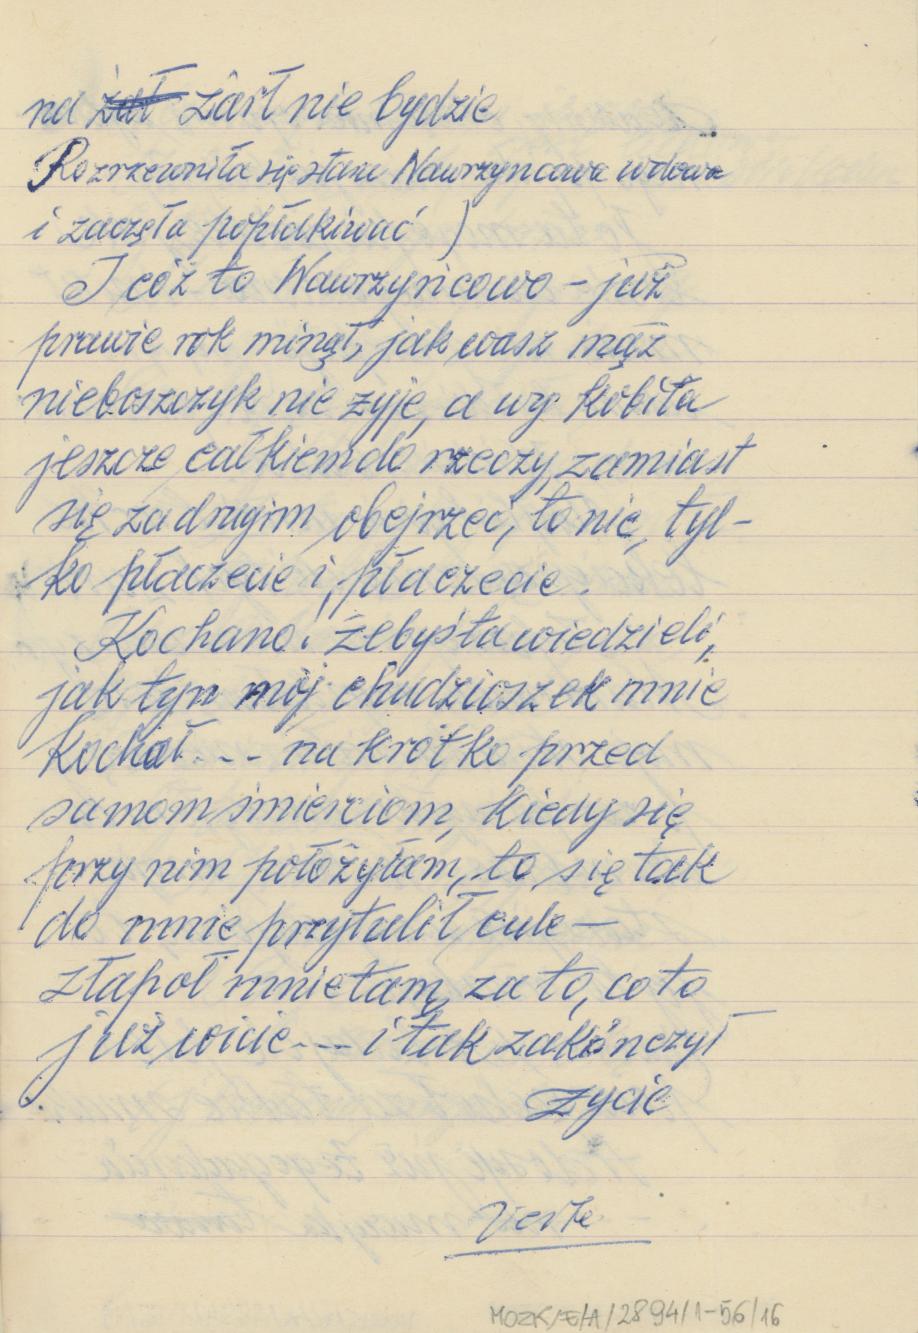 na żał żârł nie bydzie
Rozrzewniła się stara Wawrzyncowa wdowa
i zaczęła popłakiwać )
I cóż to Wawrzyńcowo – już
prawie rok minął, jak wasz mąż
nieboszczyk nie żyje, a wy kobita
jeszcze całkiem do rzeczy, zamiast
się za drugim obejrzeć, to nic, tyl-
ko płaczecie i płaczecie.
Kochano! żebyśta wiedzieli,
jak tyn mój chudzioszek mnie
kochoł... na krótko przed
samom śmierciom, kiedy się
przy nim położyłam, to się tak
do mnie przytulił cule —
złapoł mnie tam, za to, co to
już wicie... i tak zakończył
życie
MOZK/E/A/2894/1-56/16